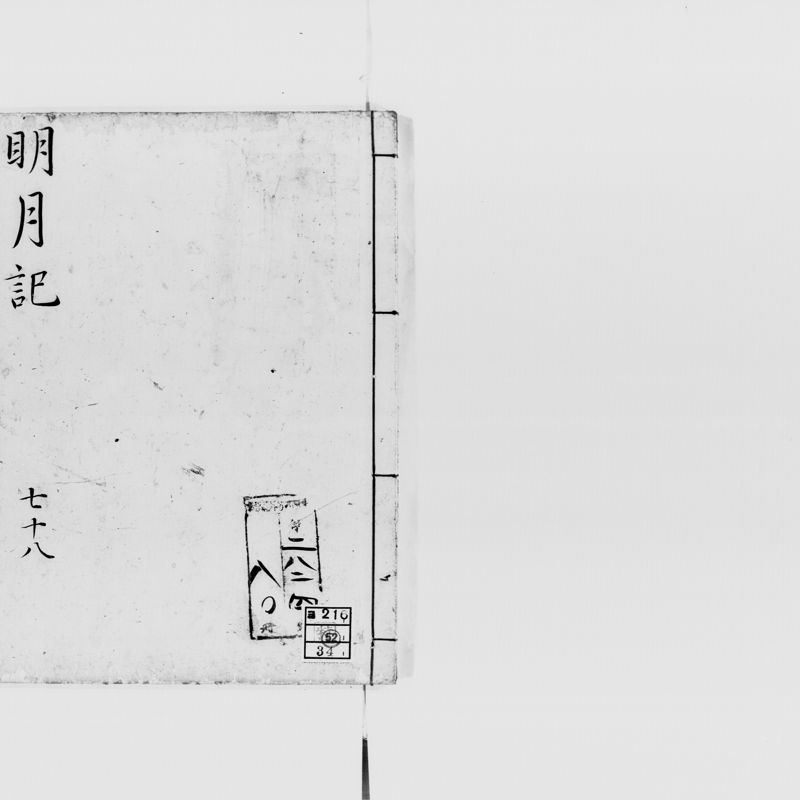 明月記
七十八
二八二
八〇
216
52
34